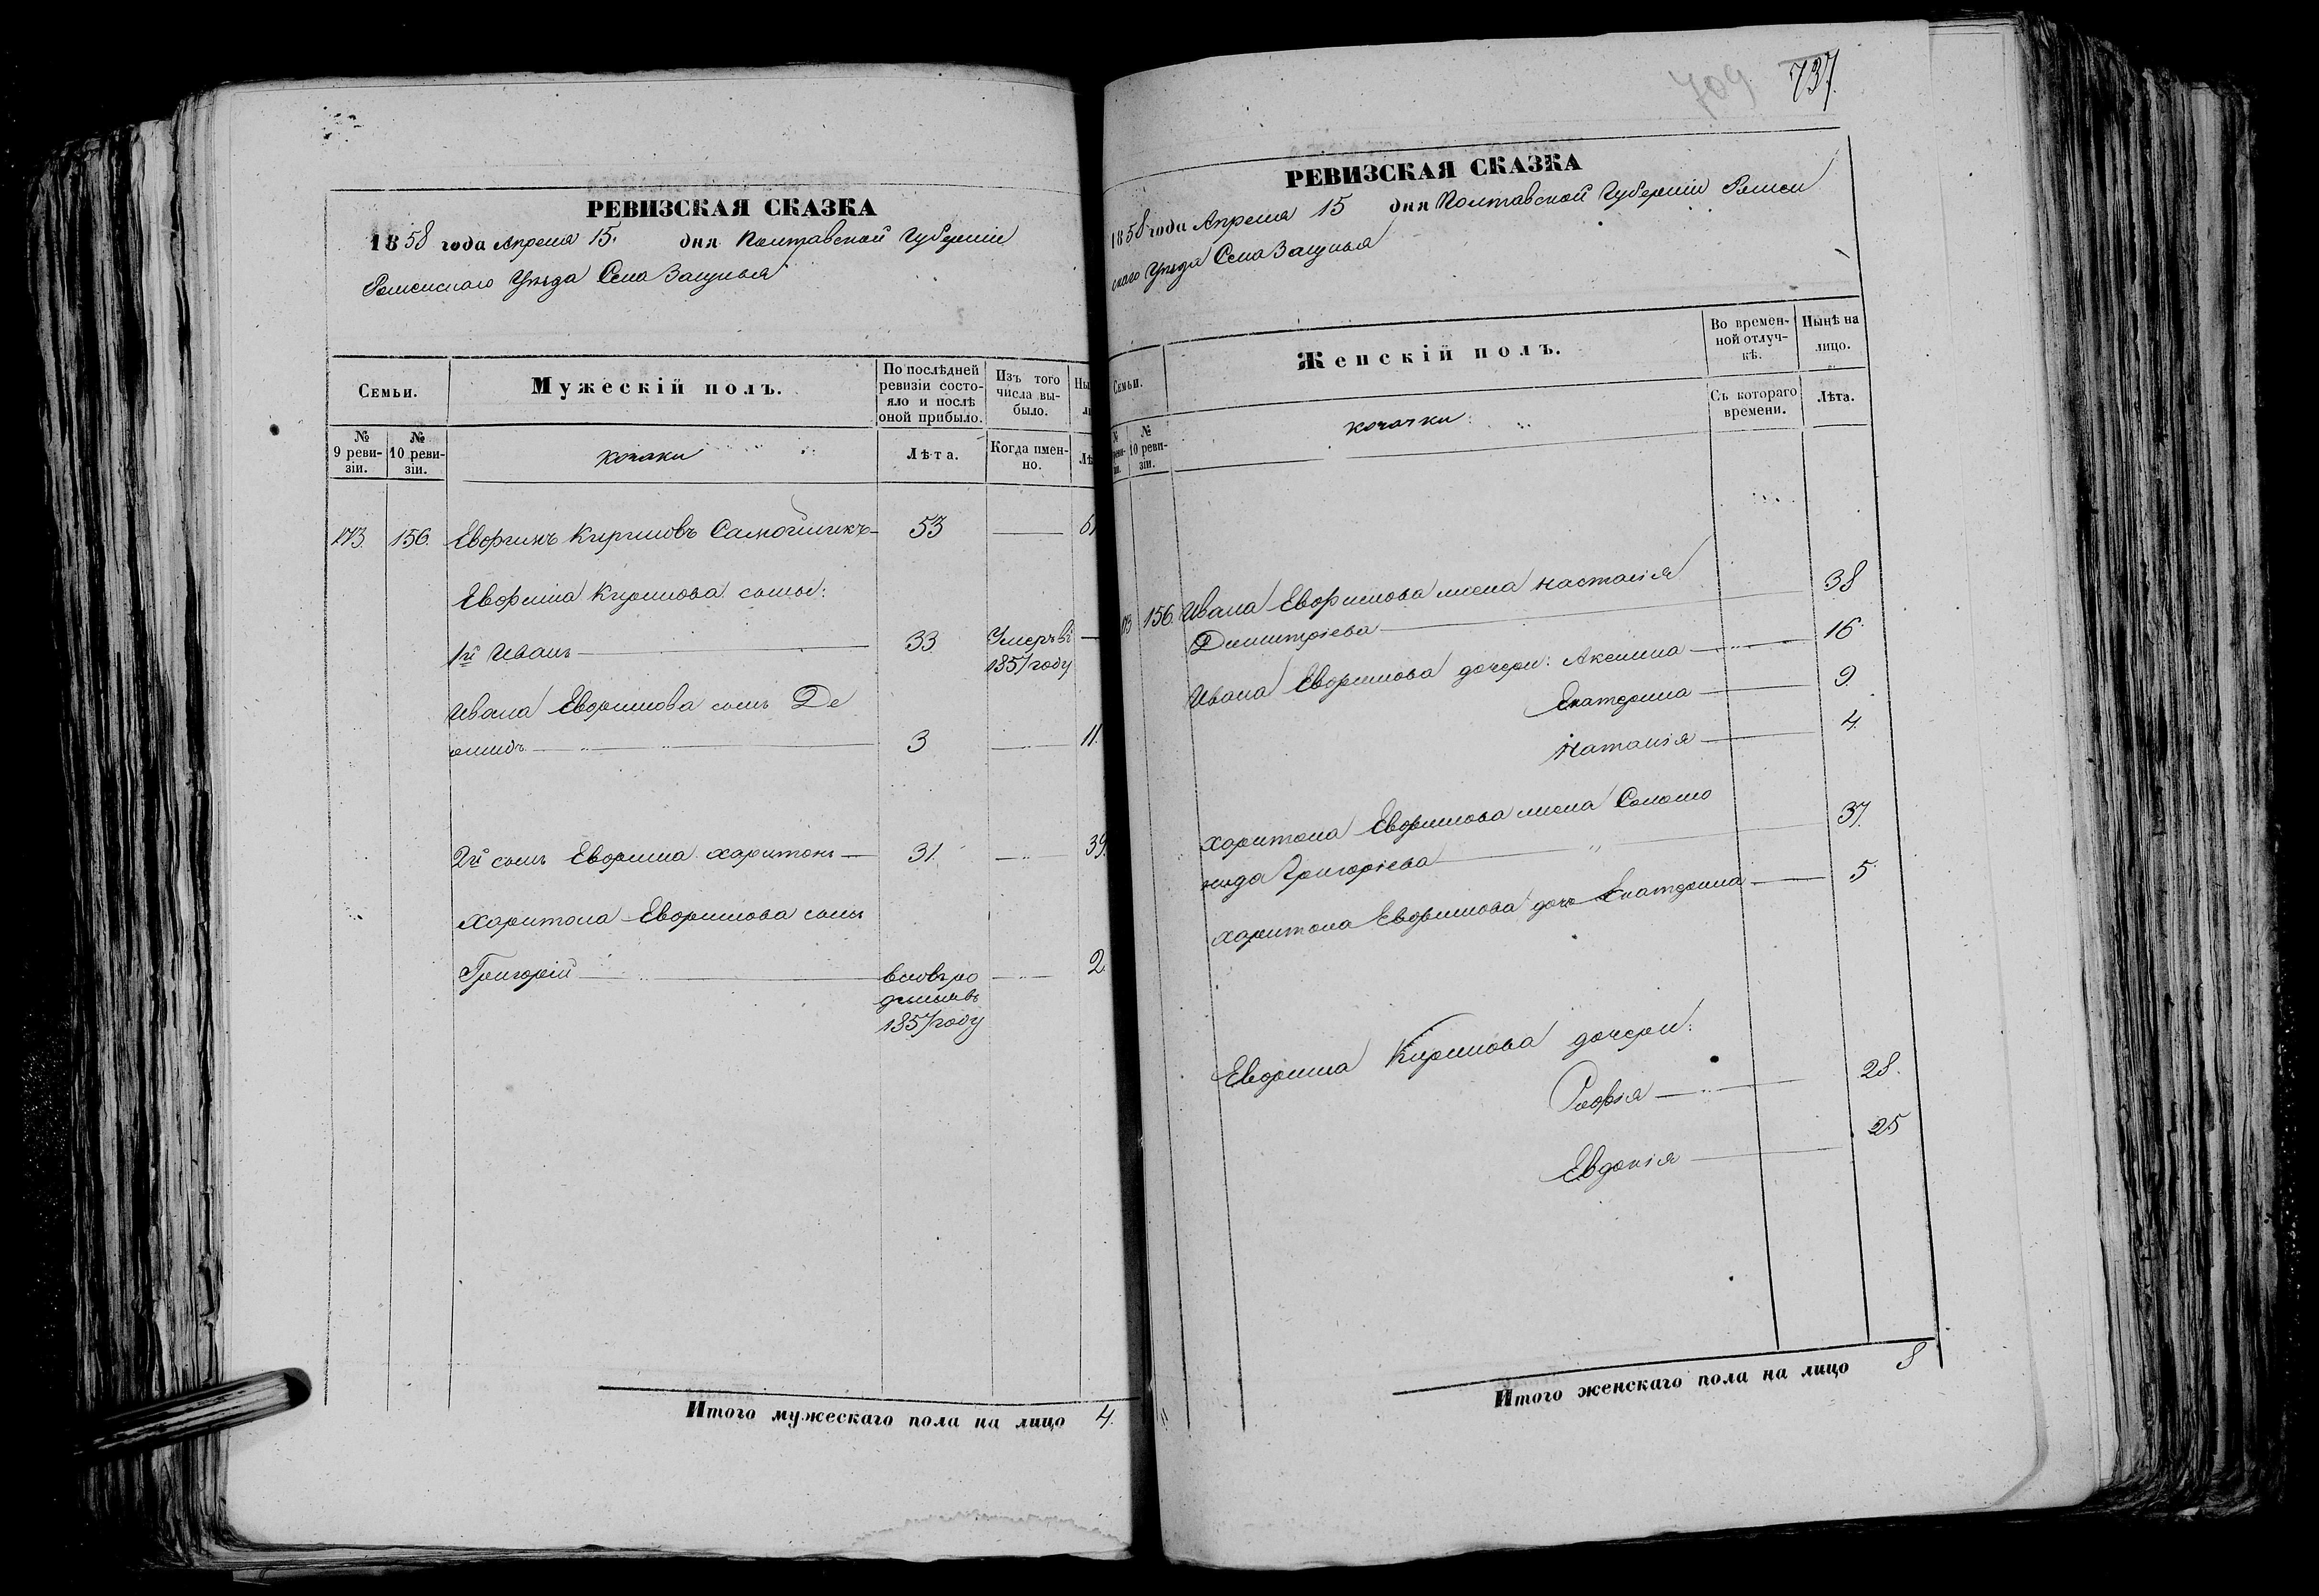 РЕВИЗСКАЯ СКАЗКА
1858 года Апреля 15. дня Полтавской Губерніи
Роменскаго Уѣзда Села Загунья
Семьи.
Мужескій полъ.
По послѣдней ревизіи состояло и послѣ оной прибыло.
Изъ того числа выбыло.
Ны
№ 9 ревизіи.
№ 10 ревизіи.
козаки
Лѣта.
Когда имен-но.
Лѣ
173. 156. Кириловъ 53 — 61
Кирилова сыны:
1й Иванъ — 33 Умеръ въ
1857 году
Ивана сынъ Де
3 — 11.
2й сынъ Харитонъ — 31. — 39.
Харитона сынъ
Григорій — вновь ро 2
дился въ
1857 году
Итого мужескаго пола на лицо 4.
709 737.
РЕВИЗСКАЯ СКАЗКА
1858 года Апреля 15 дня Полтавской Губерніи Ромен
скаго Уѣзда Села Загунья
Семьи.
Женскій полъ.
Во времен-ной отлуч-кѣ.
Нынѣ на лицо.
№ 10 реви-зіи.
козачки
Съ котораго времени.
Лѣта.
173 156. Ивана жена Настасія
Димитріева — 38
Ивана дочери: Аксинья — 16.
Екатерина — 9.
Наталія — 4.
Харитона жена Соломо
нида Григоріева — 37.
Харитона дочь Екатерина — 5.
Кирилова дочери:
Софія — 28.
Евдокія — 25
Итого женскаго пола на лицо 8